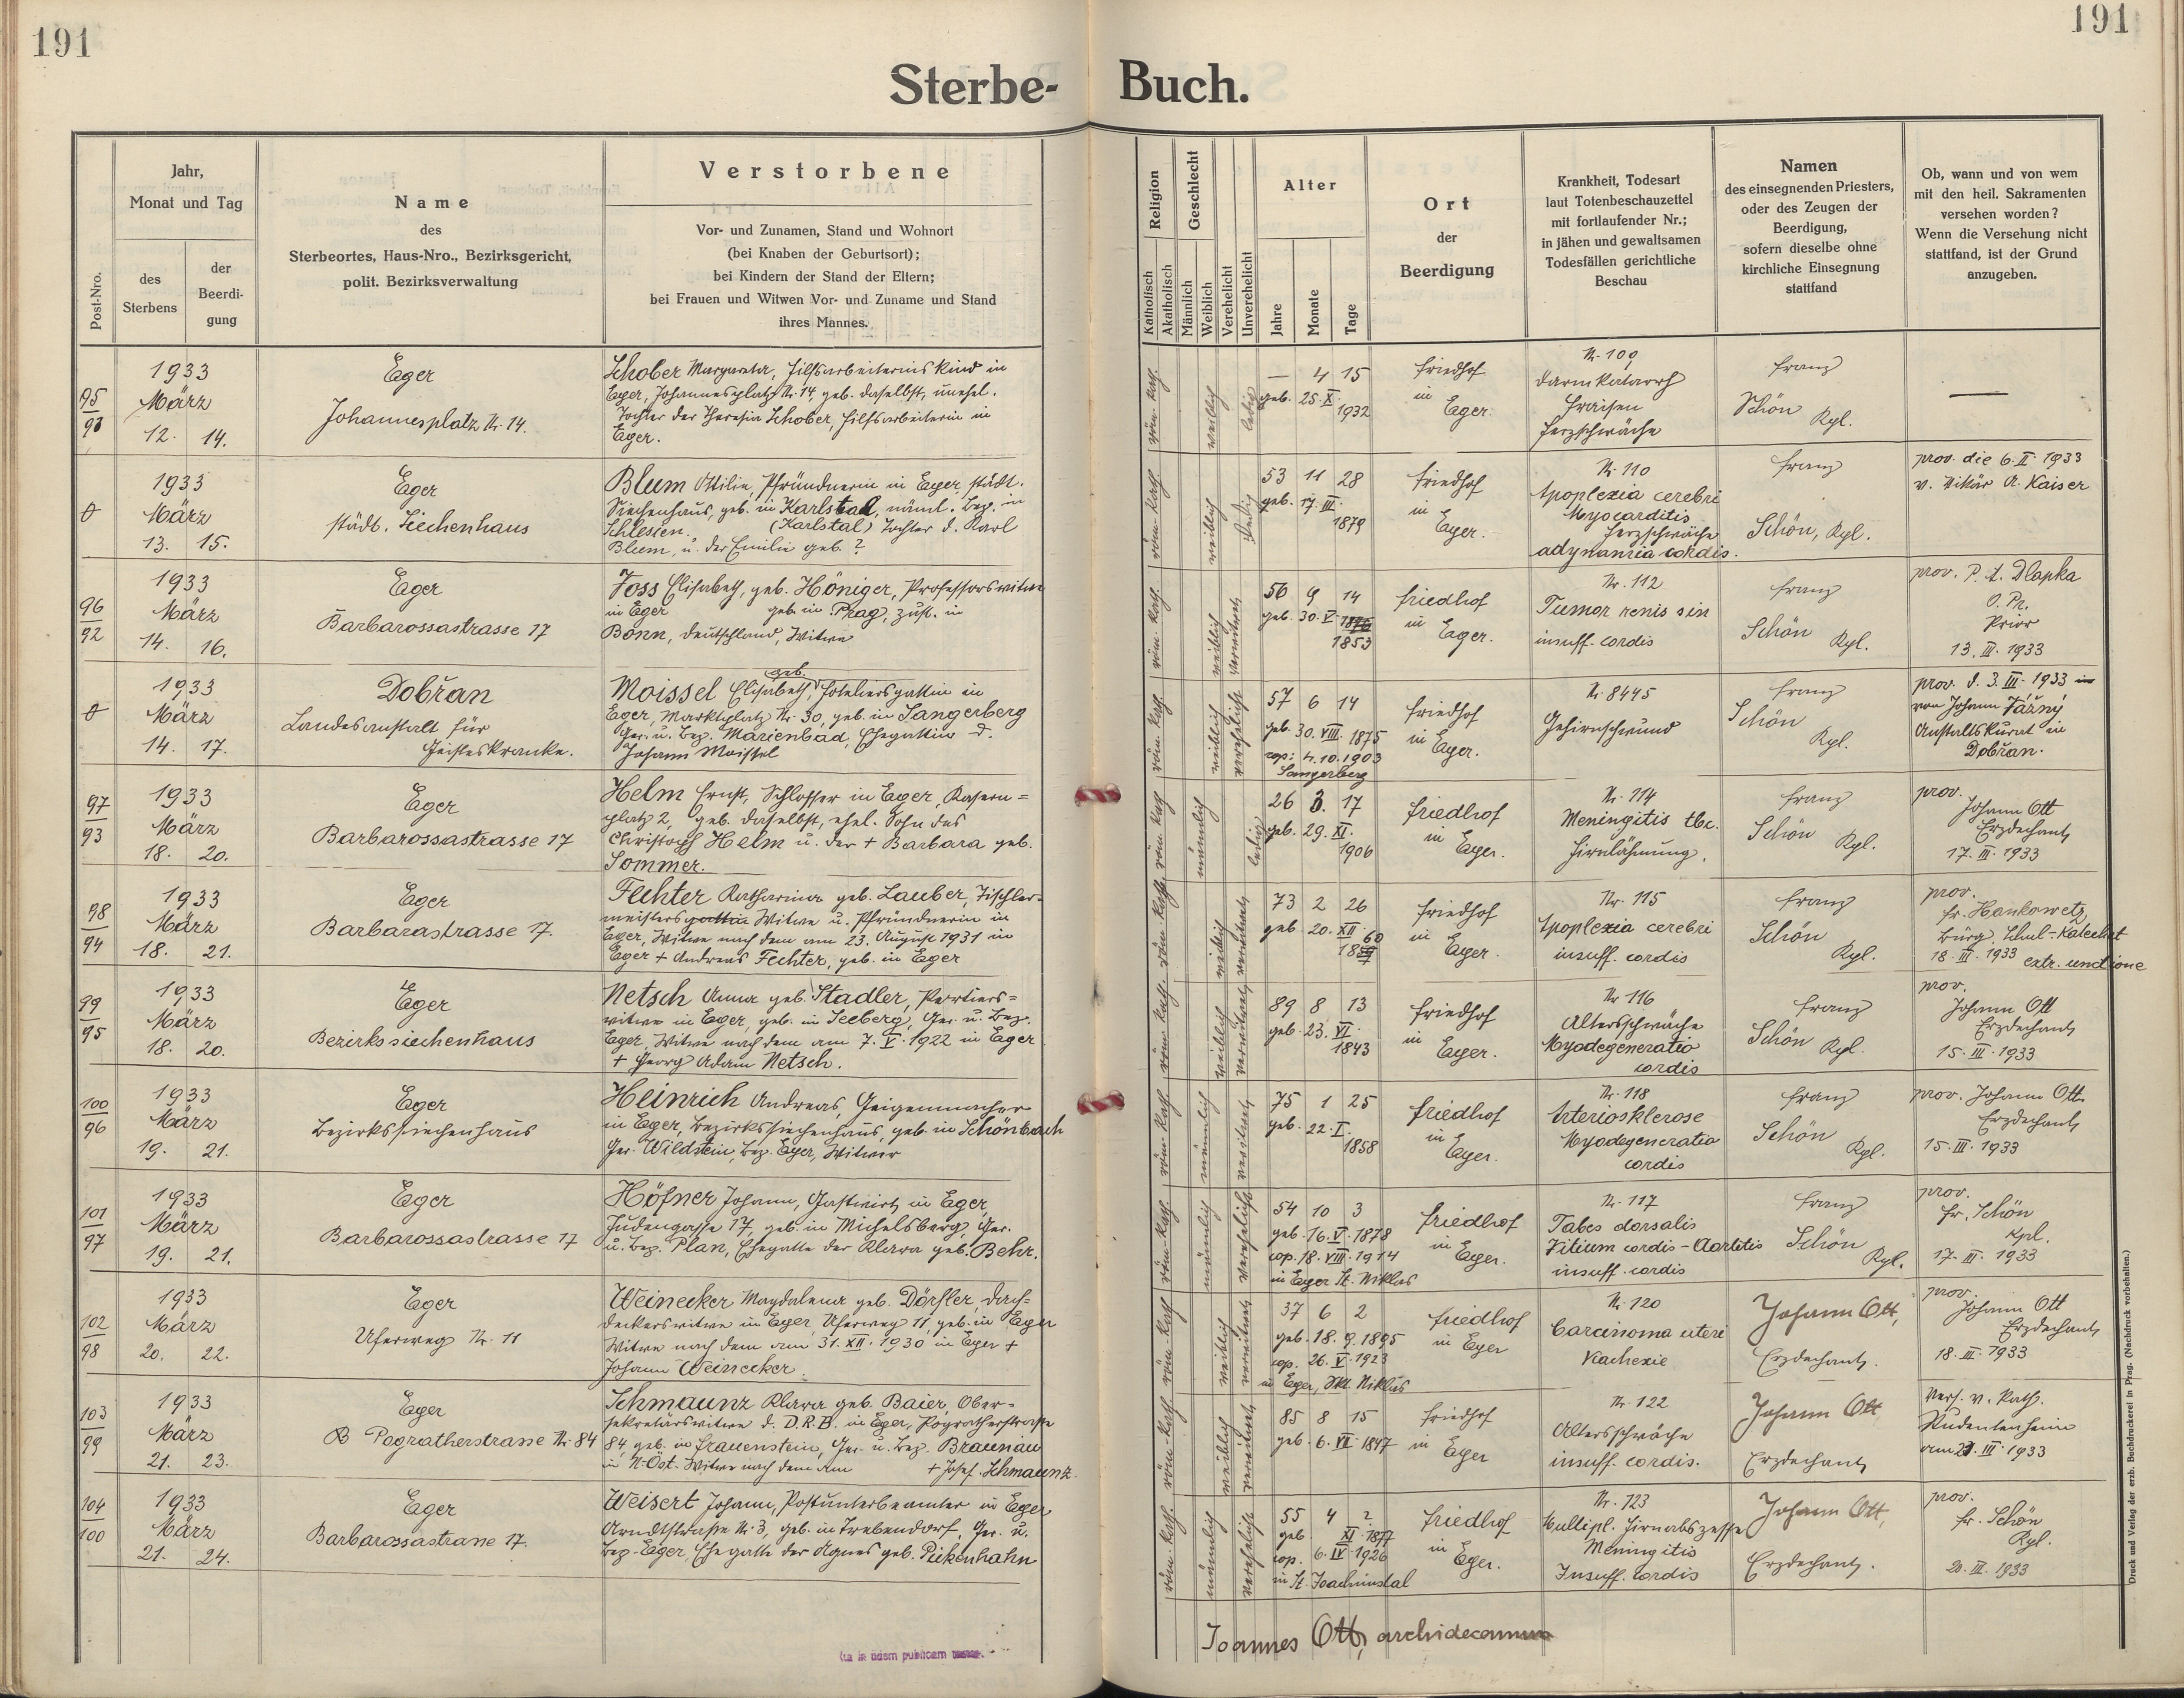 191
191
Sterbe-
Buch.
Post-Nro.
Jahr,
Monat und Tag
des
Sterbens
der
Beerdi-
gung
Name
des
Sterbeortes, Haus-Nro., Bezirksgericht,
polit. Bezirksverwaltung
Verstorbene
Vor- und Zunamen, Stand und Wohnort
(bei Knaben der Geburtsort);
bei Kindern der Stand der Eltern;
bei Frauen und Witwen Vor- und Zuname und Stand
ihres Mannes.
Religion
Katholisch
Akatholisch
Geschlecht
Männlich
Weiblich
Verehelicht
Unverehelicht
Alter
Jahre
Monate
Tage
Ort
der
Beerdigung
Krankheit, Todesart
laut Totenbeschauzettel
mit fortlaufender Nr.;
in jähen und gewaltsamen
Todesfällen gerichtliche
Beschau
Namen
des einsegnenden Priesters,
oder des Zeugen der
Beerdigung,
sofern dieselbe ohne
kirchliche Einsegnung
stattfand
Ob, wann und von wem
mit den heil. Sakramenten
versehen worden?
Wenn die Versehung nicht
stattfand, ist der Grund
anzugeben.
95
1933
März
12. 14.
Eger
Johannesplatz Nr. 14.
Schober Margareta, Hilfsarbeiterinskind in
Eger, Johannesplatz Nr. 14, geb. daselbst, unehel.
Tochter der Theresia Schober, Hilfsarbeiterin in
Eger.
röm. kath.
weiblich
ledig
— 4 15
geb. 25. X.
1932
Friedhof
in
Eger.
Nr. 109
Darmkatarrh
Fraisen
Herzschwäche
Franz
Schön Kpl.
—
1933
März
13. 15.
Eger
städt. Siechenhaus
Blum Ottilie, Pfründnerin in Eger, städt.
Siechenhaus, geb. in Karlstal, nämt. Bez. in
Schlesien. (Karlstal) Tochter d. Karl
Blum, u. der Emilie geb. ?
röm. kath.
weiblich
ledig
53 11 28
geb. 17. III.
1879
Friedhof
in
Eger.
Nr. 110
Apoplexia cerebri
Myocarditis
Herzschwäche
adynamia cordis.
Franz
Schön, Kpl.
prov. die 6. II. 1933
v. Vikär A. Kaiser
96
92
1933
März
14. 16.
Eger
Barbarossastrasse 17
Joss Elisabeth, geb. Höniger, Professorswitwe
in Eger geb. in Prag, zust. in
Bonn, Deutschland, Witwe
röm. kath.
weiblich
verwitwet
56 9 14
geb. 30. V. 1876
1853
Friedhof
in
Eger.
Nr. 112
Tumor renis sin
insuff. cordis
Franz
Schön Kpl.
prov. P. A. Dlapka
O. Pr.
Prior
13. III. 1933
1933
März
14. 17.
Dobřan
Landesanstalt für
Geisteskranke.
geb.
Moissel Elisabeth, Hoteliersgattin in
Eger, Marktplatz Nr. 30, geb. in Sangerberg
Ger. u. Bez. Marienbad, Ehegattin d.
Johann Moissel
röm. kath.
weiblich
verehelicht
57 6 14
geb. 30. VIII. 1875
cop: 4. 10. 1903
Sangerberg
Friedhof
in Eger.
Nr. 8445
Gehirnschwund
Franz
Schön
Kpl.
prov. d. 3. III. 1933 in
von Johann Fárný
Anstaltskurat in
Dobřan.
97
93
1933
März
18. 20.
Eger
Barbarossastrasse 17
Helm Ernst, Schlosser in Eger, Kasern=
platz 2, geb. daselbst, ehel. Sohn des
Christoph Helm u. der + Barbara geb.
Sommer.
röm. kath.
männlich
ledig
26 3. 17
geb. 29. XI.
1906
Friedhof
in
Eger.
Nr. 114
Meningitis tbc.
Hirnlähmung.
Franz
Schön Kpl.
prov.
Johann Ott
Erzdechant
17. III. 1933
98
94
1933
März
18. 21.
Eger
Barbarastrasse 17.
Fechter Katharina geb. Lauber, Tischler-
meistersgattin Witwe u. Pfründnerin in
Eger, Witwe nach dem am 23. August 1931 in
Eger + Andreas Fechter, geb. in Eger
röm. kath.
weiblich
verwitwet
73 2 26
geb. 20. XII.
1860
Friedhof
in
Eger.
Nr. 115
Apoplexia cerebri
insuff. cordis
Franz
Schön
Kpl.
prov.
fr. Hankowetz
Bürg. Schul-Katechet
18. III. 1933 extr. unctione
99
95
1933
März
18. 20.
Eger
Bezirkssiechenhaus
Netsch Anna geb. Stadler, Portiers=
witwe in Eger, geb. in Seeberg, Ger. u. Bez.
Eger, Witwe nach dem am 7. V. 1922 in Eger
+ Georg Adam Netsch.
röm. kath.
weiblich
verwitwet
89 8 13
geb. 23. VI.
1843
Friedhof
in
Eger.
Nr. 116
Altersschwäche
Myodegeneratio
cordis
Franz
Schön Kpl.
prov.
Johann Ott
Erzdechant
15. III. 1933
100
96
1933
März
19. 21.
Eger
Bezirkssiechenhaus
Heinrich Andreas, Geigenmacher
in Eger, Bezirkssiechenhaus, geb. in Schönbach
Ger. Wildstein, Bez. Eger, Witwer
röm. kath.
männlich
verwitwet
75 1 25
geb. 22. I.
1858
Friedhof
in
Eger.
Nr. 118
Arteriosklerose
Myodegeneratio
cordis
Franz
Schön
Kpl.
prov. Johann Ott
Erzdechant
15. III. 1933
101
97
1933
März
19. 21.
Eger
Barbarossastrasse 17
Höfner Johann, Gastwirt in Eger,
Judengasse 17, geb. in Michelsberg, Ger.
u. Bez. Plan, Ehegatte der Klara geb. Behr.
röm. kath.
männlich
verehelicht
54 10 3
geb. 16. V. 1878
cop. 18. VIII. 1914
in Eger St. Niklas
Friedhof
in
Eger.
Nr. 117
Tabes dorsalis
Vitium cordis - Aortitis
insuff. cordis
Franz
Schön
Kpl.
prov.
Fr. Schön
Kpl.
17. III. 1933
102
98
1933
März
20. 22.
Eger
Uferweg Nr. 11
Weinecker Magdalena geb. Dörfler, Dach=
deckerswitwe in Eger Uferweg 11, geb. in Eger
Witwe nach dem am 31. XII. 1930 in Eger +
Johann Weinecker.
röm. kath.
weiblich
verwitwet
37 6 2
geb. 18. 9. 1895
cop. 26. V. 1923
in Eger, Skt. Niklas
Friedhof
in Eger
Nr. 120
Carcinoma uteri
Kachexie
Johann Ott,
Erzdechant.
prov.
Johann Ott
Erzdechant
18. III. 1933
103
99
1933
März
21. 23.
Eger
Pograthersstrasse Nr. 84
Schmaunz Klara geb. Baier, Ober=
sekretärswitwe d. D.R.B. in Eger, Pogratherstrasse
84, geb. in Frauenstein, Ger. u. Bez. Braunau
in N-Öst. Witwe nach dem am + Josef Schmaunz.
röm. kath.
weiblich
verwitwet
85 8 15
geb. 6. VII. 1847
Friedhof
in
Eger
Nr. 122
Altersschwäche
insuff. cordis.
Johann Ott
Erzdechant
Vers. v. Kath.
Studentenheim
am 21. III. 1933
104
100
1933
März
21. 24.
Eger
Barbarossastrasse 17.
Weisert Johann, Postunterbeamter in Eger
Arndtstraße Nr. 3, geb. in Trebendorf, Ger. u.
Bez. Eger, Ehegatte der Agnes geb. Pickenhahn
röm. kath.
männlich
verehelicht
55 4 ?
geb. XI. 1877
cop. 6. IV. 1926
in St. Joachimstal
Friedhof
in
Eger.
Nr. 123
Multipl. Hirnabszesse
Meningitis
Insuff. cordis
Johann Ott,
Erzdechant.
prov.
fr. Schön
Kpl.
20. III. 1933
Joannes Ott, archidecanus
Druck und Verlag der erzb. Buchdruckerei in Prag. (Nachdruck vorbehalten.)